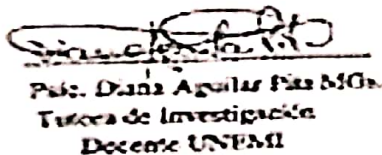 Psic. Diana Aguilar MGs.
Tutora de Investigación
Docente UNEMI